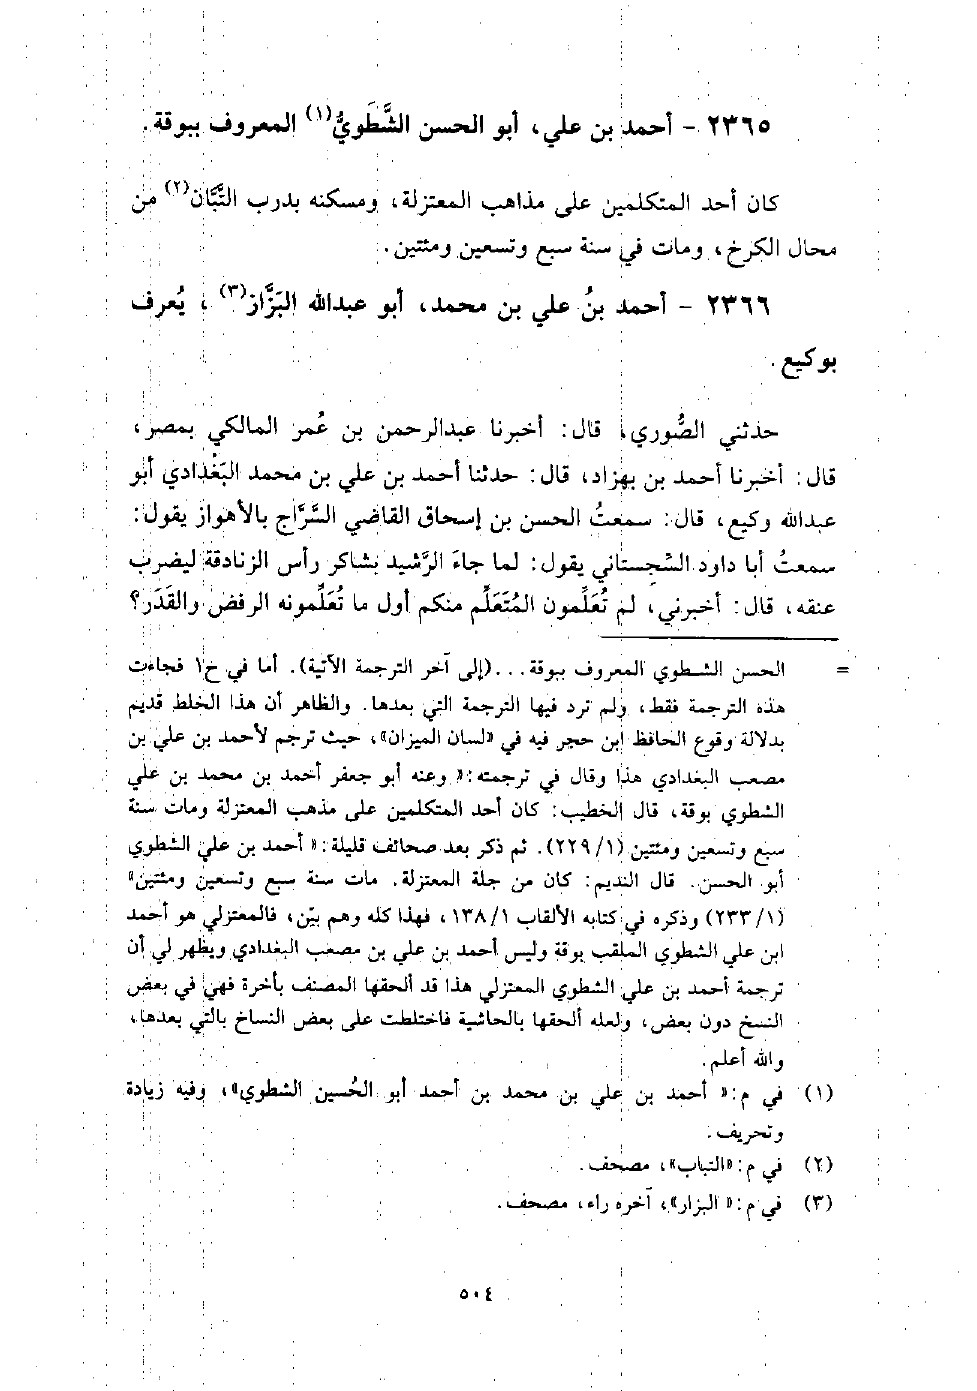 ٢٣٦٥ - أحمد بن علي، أبو الحسن الشَّطَويُّ(١) المعروف ببوقة.
كان أحد المتكلمين على مذاهب المعتزلة، ومسكنه بدرب التَّبَّان(٢) من
محال الكرخ، ومات في سنة سبع وتسعين ومئتين.
٢٣٦٦ - أحمد بنُ علي بن محمد، أبو عبدالله البَزَّاز(٣)، يُعرف
بوكيع.
حدثني الصُّوري، قال: أخبرنا عبدالرحمن بن عُمر المالكي بمصر،
قال: أخبرنا أحمد بن بهزاد، قال: حدثنا أحمد بن علي بن محمد البَغْدادي أبو
عبدالله وكيع، قال: سمعتُ الحسن بن إسحاق القاضي السَّرَّاج بالأهواز يقول:
سمعتُ أبا داود السِّجِستاني يقول: لما جاءَ الرَّشيد بشاكر رأس الزنادقة ليضرب
عنقه، قال: أخبرني، لم تُعَلِّمون المُتَعَلِّم منكم أول ما تُعَلِّمونه الرفض والقَدَر؟
= الحسن الشطوي المعروف ببوقة... (إلى آخر الترجمة الآتية). أما في خ١ فجاءت
هذه الترجمة فقط، ولم ترد فيها الترجمة التي بعدها. والظاهر أن هذا الخلط قديم
بدلالة وقوع الحافظ ابن حجر فيه في «لسان الميزان»، حيث ترجم لأحمد بن علي بن
مصعب البغدادي هذا وقال في ترجمته:« وعنه أبو جعفر أحمد بن محمد بن علي
الشطوي بوقة، قال الخطيب: كان أحد المتكلمين على مذهب المعتزلة ومات سنة
سبع وتسعين ومئتين (١/ ٢٢٩). ثم ذكر بعد صحائف قليلة:« أحمد بن علي الشطوي
أبو الحسن. قال النديم: كان من جلة المعتزلة. مات سنة سبع وتسعين ومئتين»
(١/ ٢٣٣) وذكره في كتابه الألقاب ١/ ١٣٨، فهذا كله وهم بيّن، فالمعتزلي هو أحمد
ابن علي الشطوي الملقب بوقة وليس أحمد بن علي بن مصعب البغدادي ويظهر لي أن
ترجمة أحمد بن علي الشطوي المعتزلي هذا قد ألحقها المصنف بأخرة فهي في بعض
النسخ دون بعض، ولعله ألحقها بالحاشية فاختلطت على بعض النساخ بالتي بعدها،
والله أعلم.
(١) في م:« أحمد بن علي بن محمد بن أحمد أبو الحُسين الشطوي»، وفيه زيادة
وتحريف.
(٢) في م: «التباب»، مصحف.
(٣) في م:« البزار»، آخره راء، مصحف.
٥٠٤